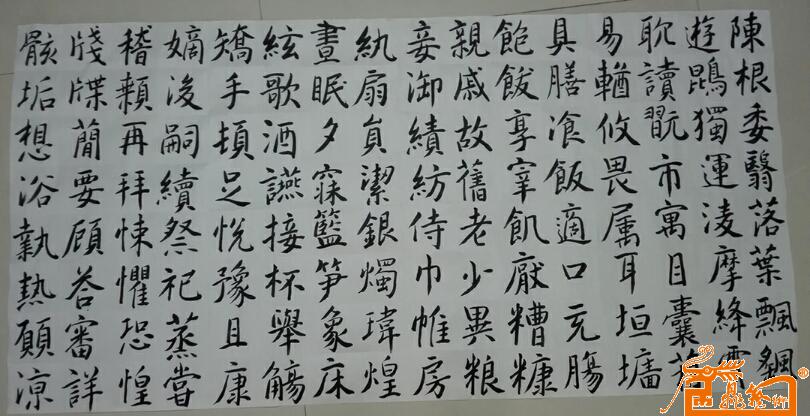 陳根委翳落葉飄飖
遊鵾獨運淩摩絳
耽讀翫市寓目囊
易輶攸畏属耳垣墻
具膳飡飯適口充腸
飽飫享宰飢厭糟糠
親戚故舊老少異粮
妾御績紡侍巾帷房
紈扇員潔銀燭瑋煌
晝眠夕寐籃笋象床
絃歌酒讌接杯舉觴
矯手頓足悦豫且康
嫡後嗣續祭祀蒸嘗
稽顙再拜悚懼恐惶
牋牒簡要顧荅審詳
骸垢想浴執熱願凉